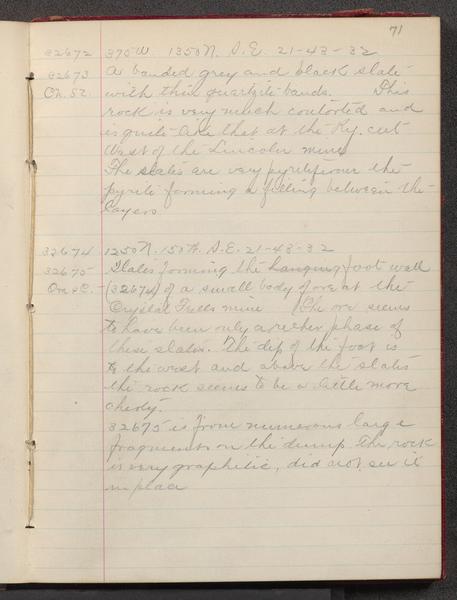 71
32672 375 W. 1350 N. S.E. 21-43-32
32673 A banded grey and black slate
with thin quartzite bands. This
rock is very much contorted and
is quite like that at the Ry. cut
West of the Lincoln mine
The slates are very pyritiferous the
pyrite forming a filling between the
layers
32674 1250 N. 150 W. S.E. 21-43-32
32675 Slates forming the hanging foot wall
(32674) of a small body of ore at the
Crystal Falls mine The ore seems
to have been only a richer phase of
these slates. The dip of the foot is
to the west and above the slates
the rock seems to be a little more
cherty.
32675 is from numerous large
fragments on the dump the rock
is very graphitic, did not see it
in place